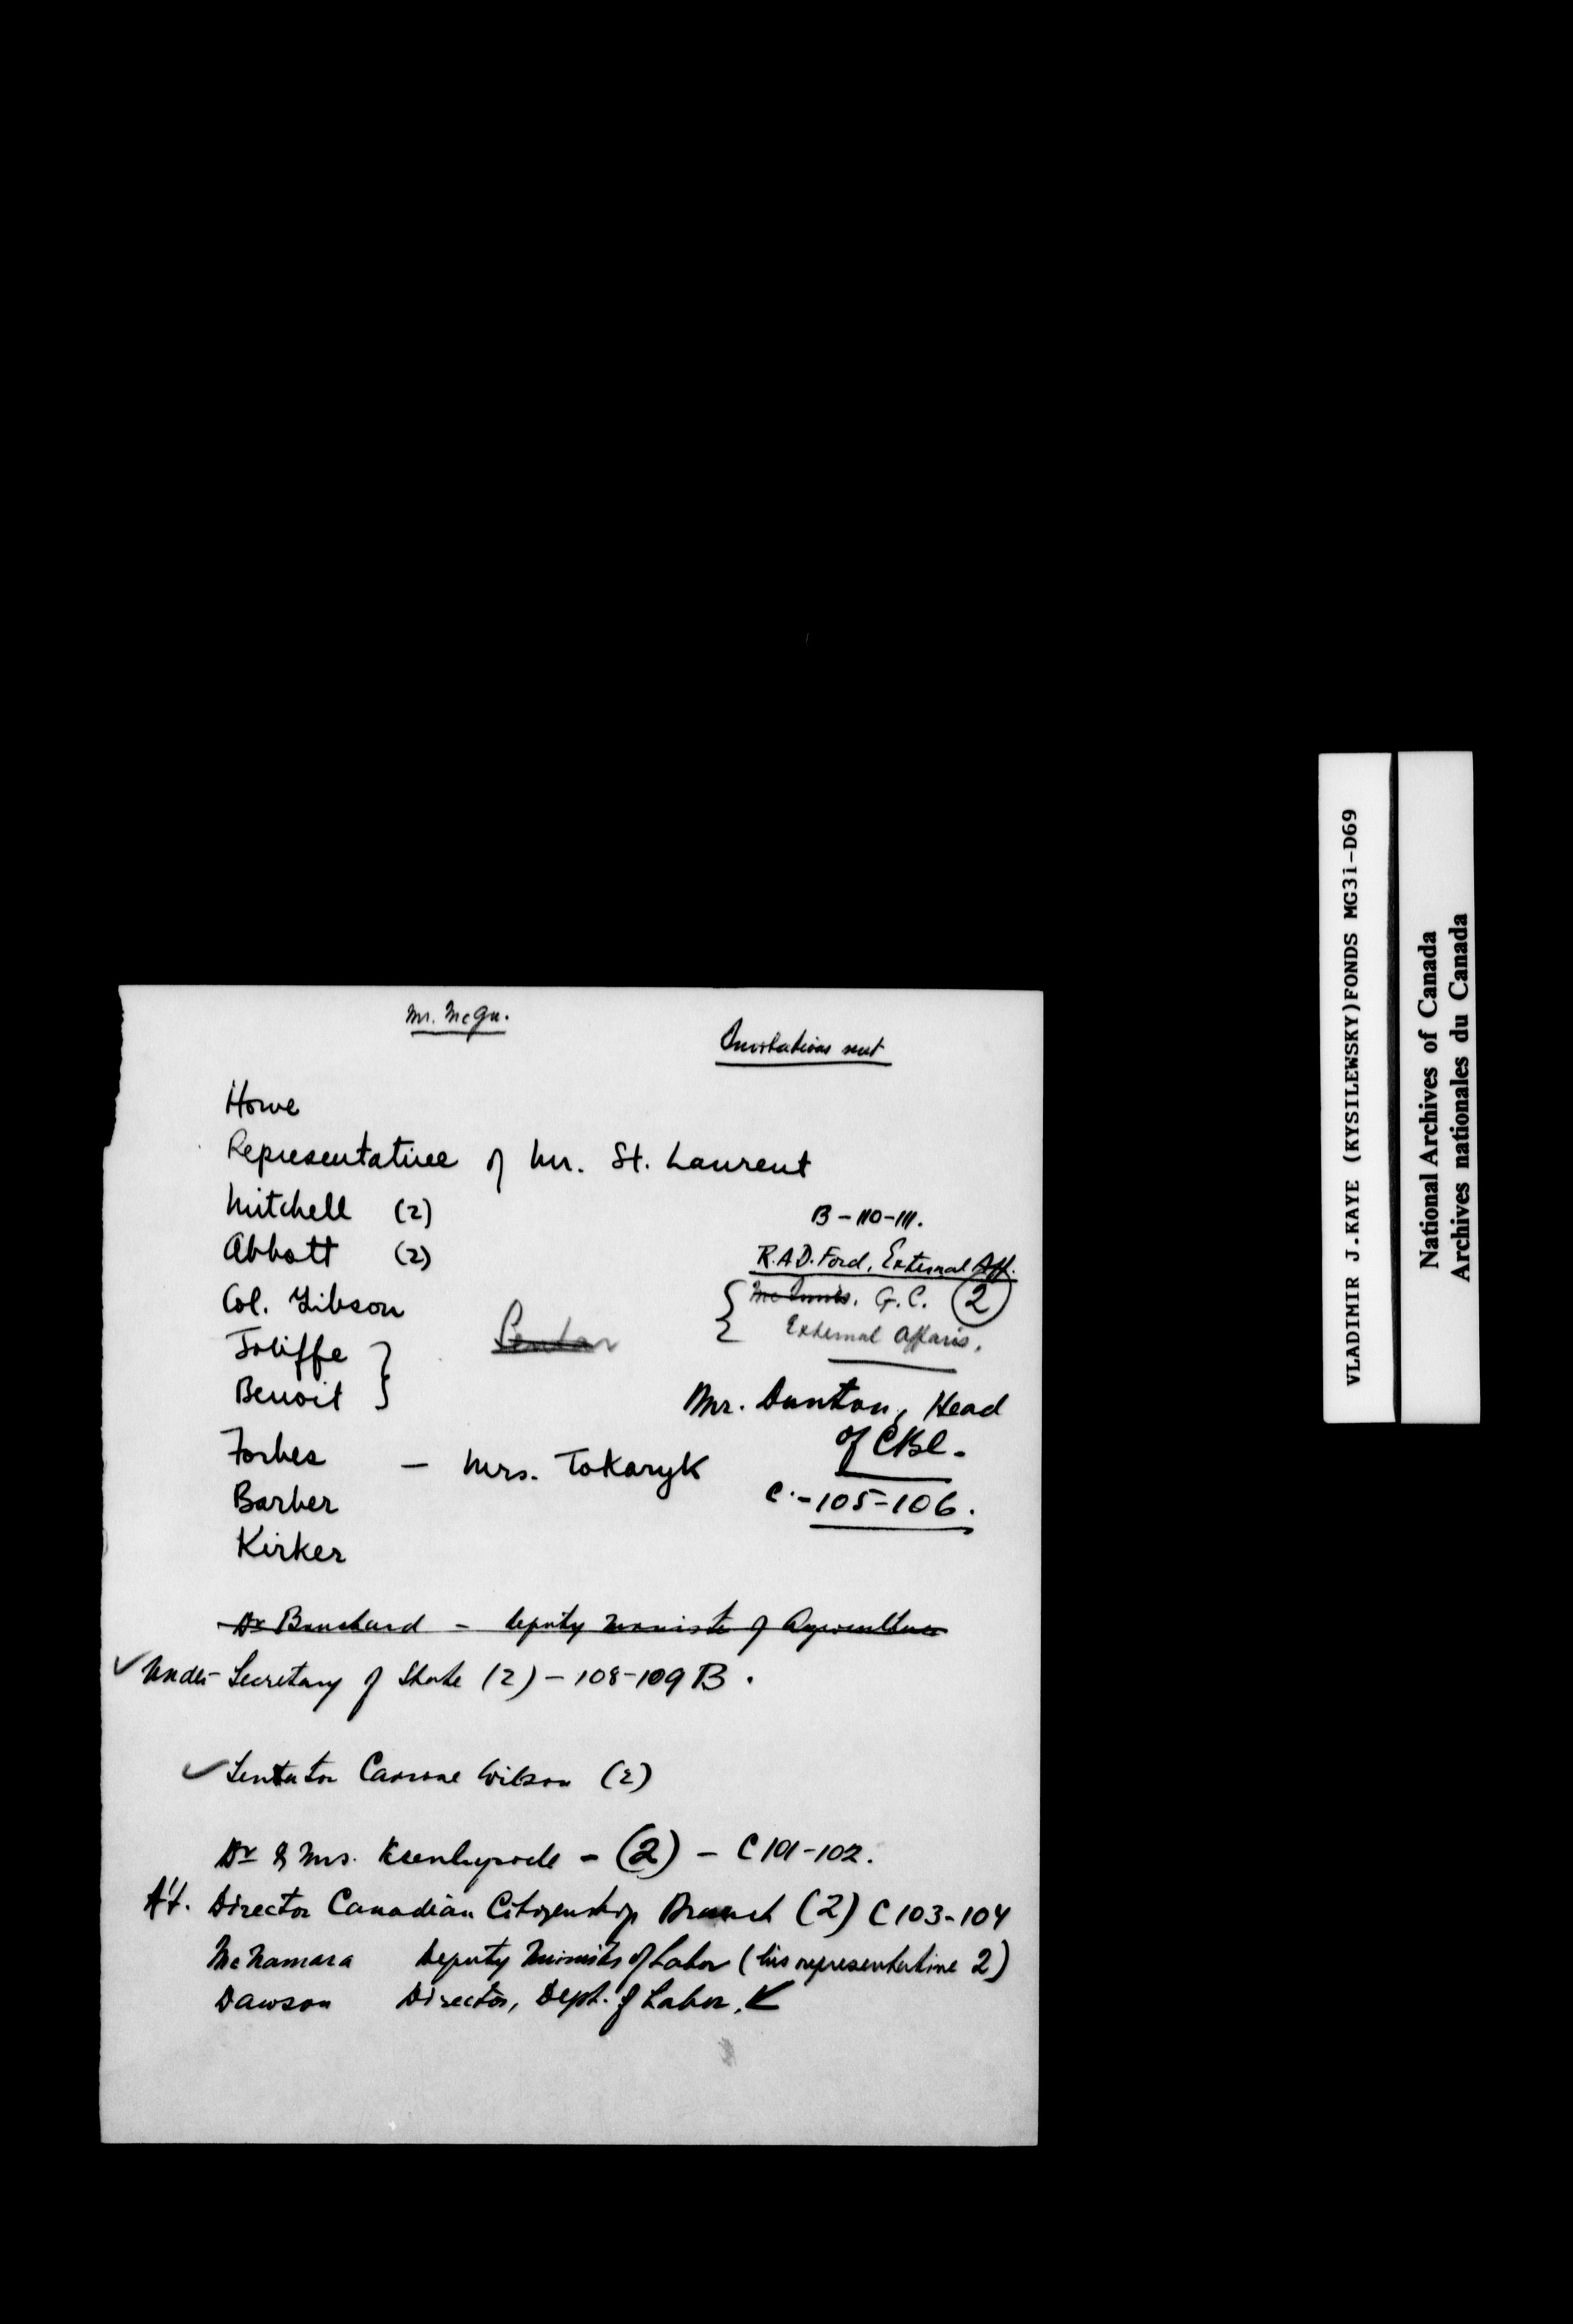 Mr. McGu.
Invitations sent
Howe
Representative of Mr. St. Laurent
Mitchell (2)
Abbott (2)
Col. Gibson
Joliffe }
Benoit }
Forbes — Mrs. Tokaryk
Barber
Kirker
B-110-111.
R.A.D. Ford, External Aff.
McInnis, G.C. (2)
External Affairs.
Mr. Dunton, Head
of CBC.
C.-105-106.
Dr Bouchard - Deputy Minister of Agriculture
✓ Under-Secretary of State (2) - 108-109 B.
✓ Senator Carine Wilson (2)
Dr & Mrs. - (2) - C 101-102.
Director Canadian Citizenship Branch (2) C 103-104
McNamara Deputy Minister of Labor (his representative 2)
Dawson Director, Dept. of Labor. ✓
VLADIMIR J.KAYE (KYSILEWSKY)FONDS MG31-D69
National Archives of Canada
Archives nationales du Canada